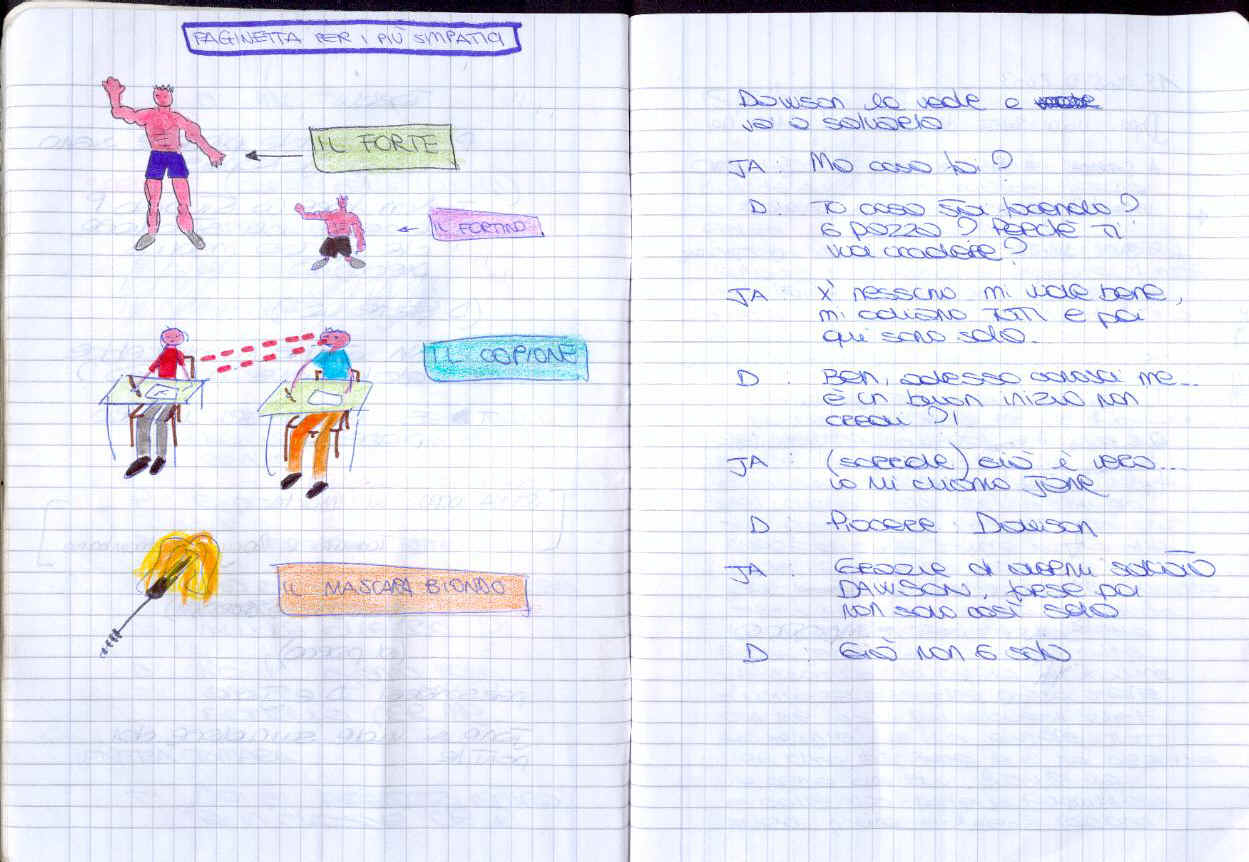 PAGINETTA PER I PIÙ SIMPATICI
IL FORTE
IL FORTINO
IL COPIONE
IL MASCARA BIONDO
Dawson la vede e
va a salvarla
JA : Ma cosa fai?
D : TU cosa stai facendo?
6 pazza? Perché TI
vuoi uccidere?
JA X' nessuno mi vuole bene,
mi odiano TUTTI e poi
qui sono sola.
D : Beh, adesso conosci me...
è un buon inizio non
credi?!
JA : (sorride) già è vero...
io mi chiamo JANE
D : Piacere Dawson
JA : Grazie di avermi salvato
DAWSON, forse poi
non sono così sola
D : Già non 6 sola